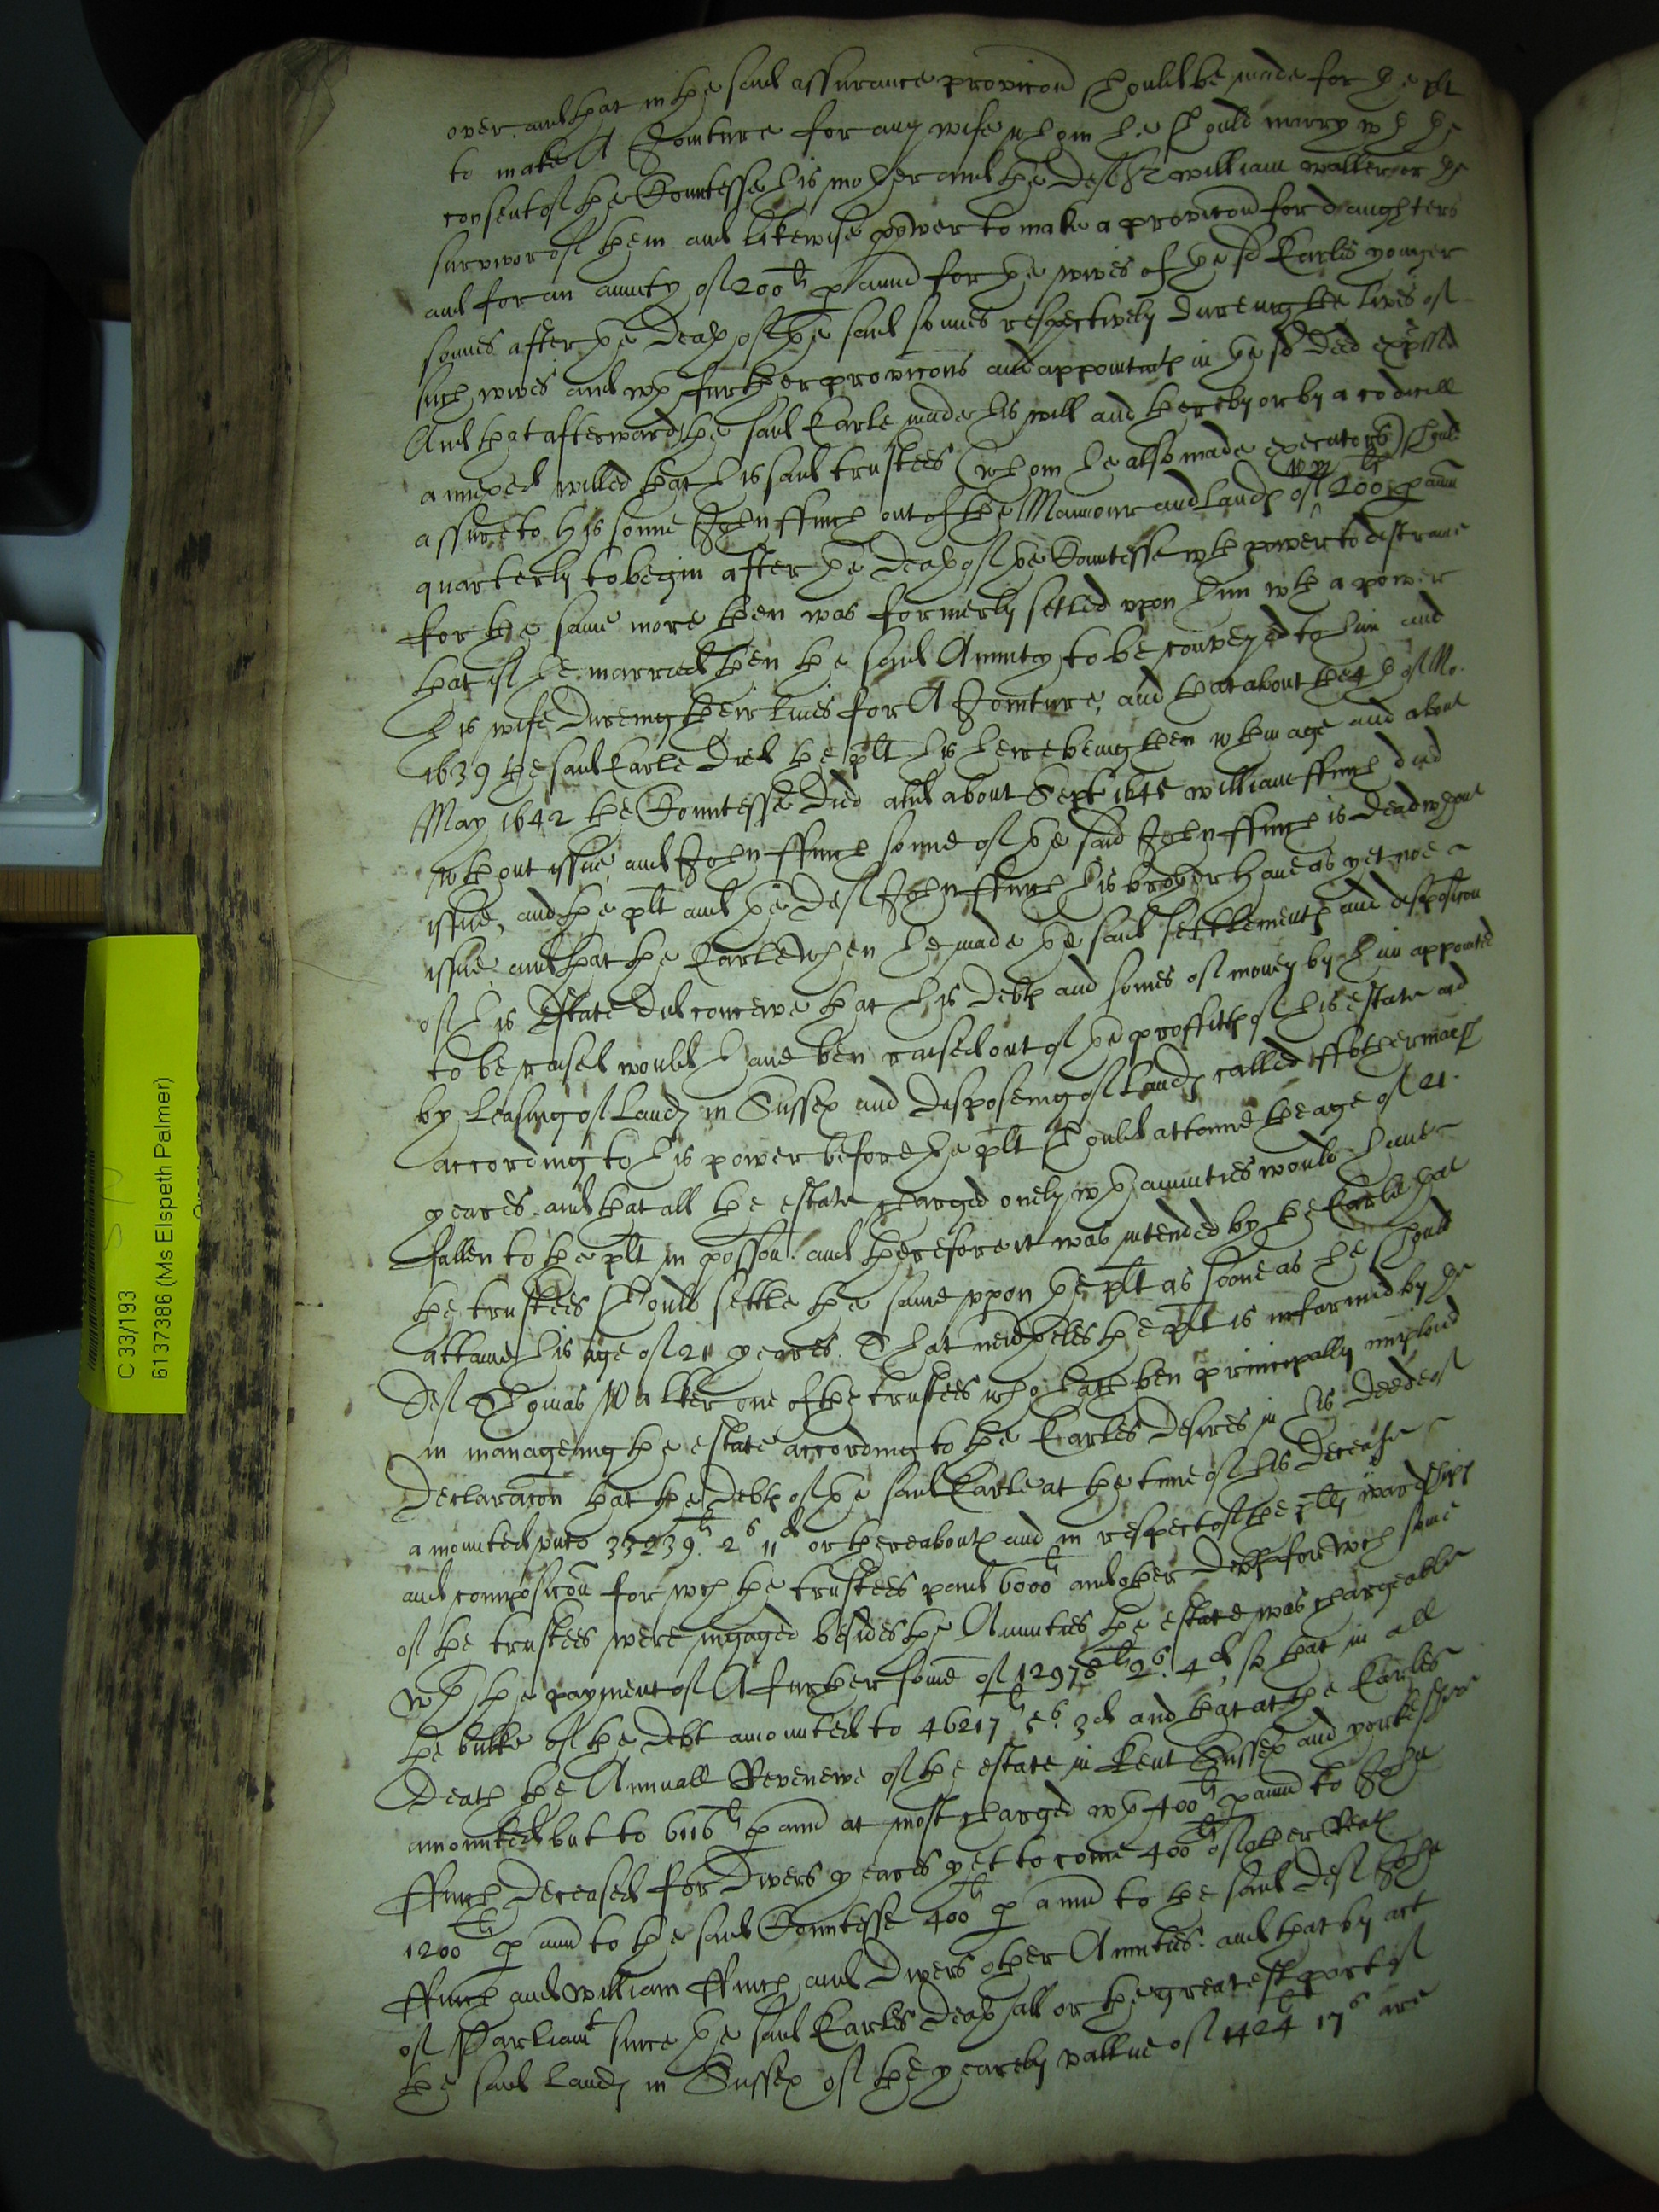 over. and that in the said assurance provicon should be made for the plt
to make A Jointure for any wife whom he should marry wth the
consent of the Countesse his mother and the Deft Sr william waller or the
survivor of them and likewise power to make a provicon for daughters
and for an anuity of 200li p annu for the wives of the sd Earles younger
sonnes after the death of the said sonnes respectively dureing the lives of
such wives and wth further provicons and appointmts in the sd deed expssed
And that afterwards the said Earle made his will and thereby or by a codicill
annexed willed that his said trustees (whom he also made executors) should
assure to his sonne John ffinch out of the Mannour and lands of 200li p annu
quarterly to begin after the death of the Countesse wth power to distraine
for the same more then was formerly setled upon him wth a power
that if he married then the said Anuity to be conveyed to him and
his wife dureing their lives for A Jointure, and that about the 4th of No.
1639 the said Earle died the plt his heire being then wthin age and about
May 1642 the Countesse died and about Sept 1645 william ffinch died
wthout issue, and John ffinch sonne of the said John ffinch is dead wthout
issue, and the plt and the Deft John ffinch his brother have as yet noe
issue and that the Earle when he made the said settlements and disposicon
of his Estate did conceive that his debts and somes of money by him appointed
to be raised would have ben raised out of the proffitts of his estate and
by leasing of lands in Sussex and disposeing of lands called ffothermarsh
according to his power before the plt should attaine the age of 21.
yeares. and that all the estate charged onely wth anuities would have
fallen to the plt in posson. and therefore it was intended by the Earle that
the trustees should settle the same upon the plt as soone as he should
attaine his age of 21 yeares. That neverthelesse the plt is informed by the
Deft Thomas Walker one of the trustees who hath ben principally imployed
in manageing the estate according to the Earles desires in his deede of
Declaracon that the debts of the said Earle at the time of his decease
amounted unto 33239li 2s 11d or thereabouts and in respect of the plts wardshipp
and composicon for wch the trustees paid 6000li and other debts for wch some
of the trustees were ingaged besides the Anuities the estate was chargeable
wth the payment of A further some of 12978li 2s. 4d, so that in all
the bulke of the debt amounted to 46217li 5s. 3d and that at the Earles
death the Annuall Revenewe of the estate in Kent Sussex and yorkeshire
amounted but to 6116li p annu at most charged wth 400li p annu to John
ffinch deceased for divers yeares yet to come 400li of other Rents
1200li p annu to the said Countesse 400li p annu to the said Deft John
ffinch and William ffinch and divers other Anuities. and that by act
of Parliamt since the said Earles death all or the greatest part of
the said lands in Sussex of the yearely vallue of 1424li 17s are
C 33/193
6137386 (Ms Elspeth Palmer)